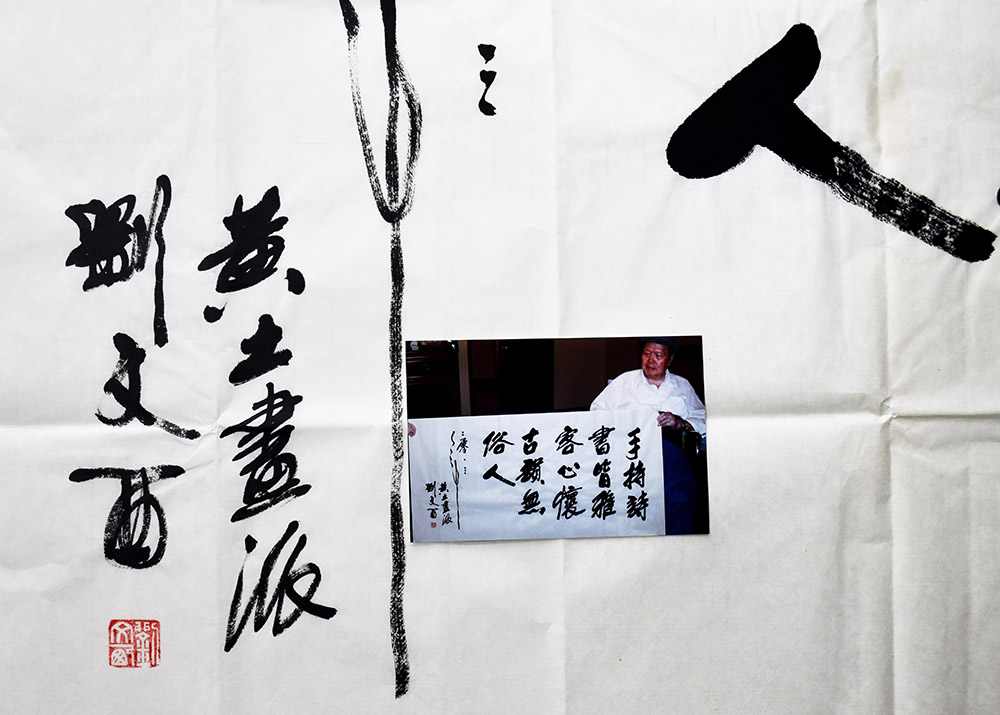 人
黄土畫派
劉文西
劉文西
手持詩
書皆雅
客心懷
古韻無
俗人
黄土畫派
劉文西